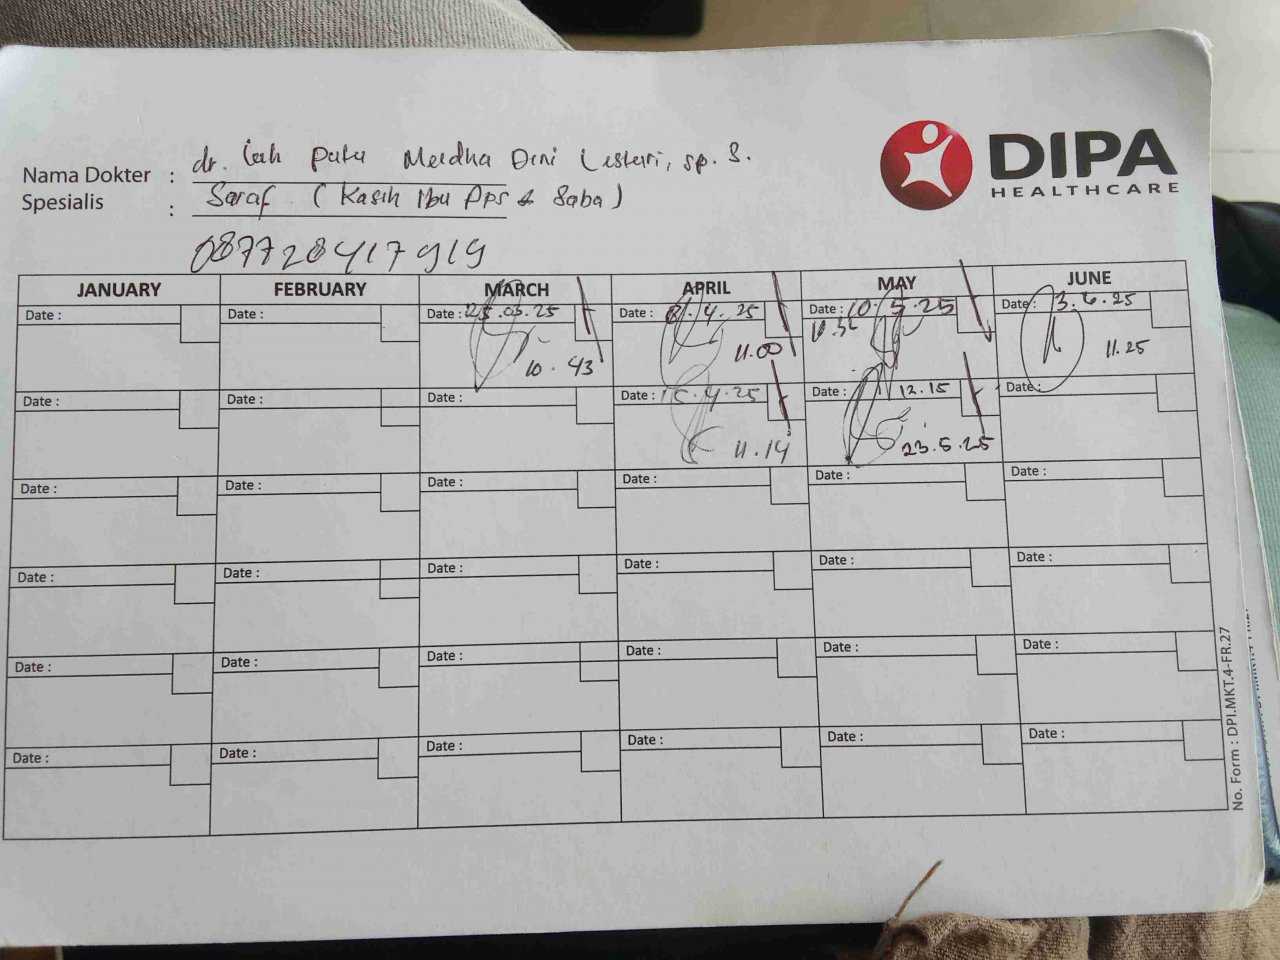 DIPA
HEALTHCARE
Nama Dokter : dr. Putu Merdha Dini Lestari, sp. S.
Spesialis : Saraf (Kasih Ibu Dps & Saba)
087728417919
JANUARY FEBRUARY MARCH APRIL MAY JUNE
Date : Date : Date : 25.03.25 Date : 8.4.25 Date : 10.5.25 Date : 3.6.25
10.43 11.00 11.25
Date : Date : Date : Date : 15.4.25 Date : 12.15 Date :
11.14 23.5.25
Date : Date : Date : Date : Date : Date :
Date : Date : Date : Date : Date : Date :
Date : Date : Date : Date : Date : Date :
Date : Date : Date : Date : Date : Date :
No. Form : DPI.MKT.4-FR.27